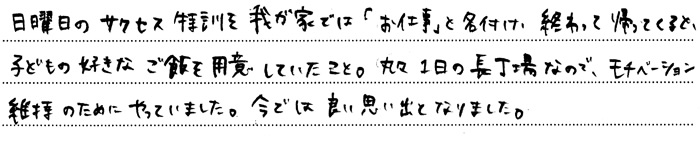 日曜日のサクセス特訓を我が家では「お仕事」と名付け、終わって帰ってくると、
子どもの好きなご飯を用意していたこと。丸々1日の長丁場なので、モチベーション
維持のためにやっていました。今では良い思い出となりました。